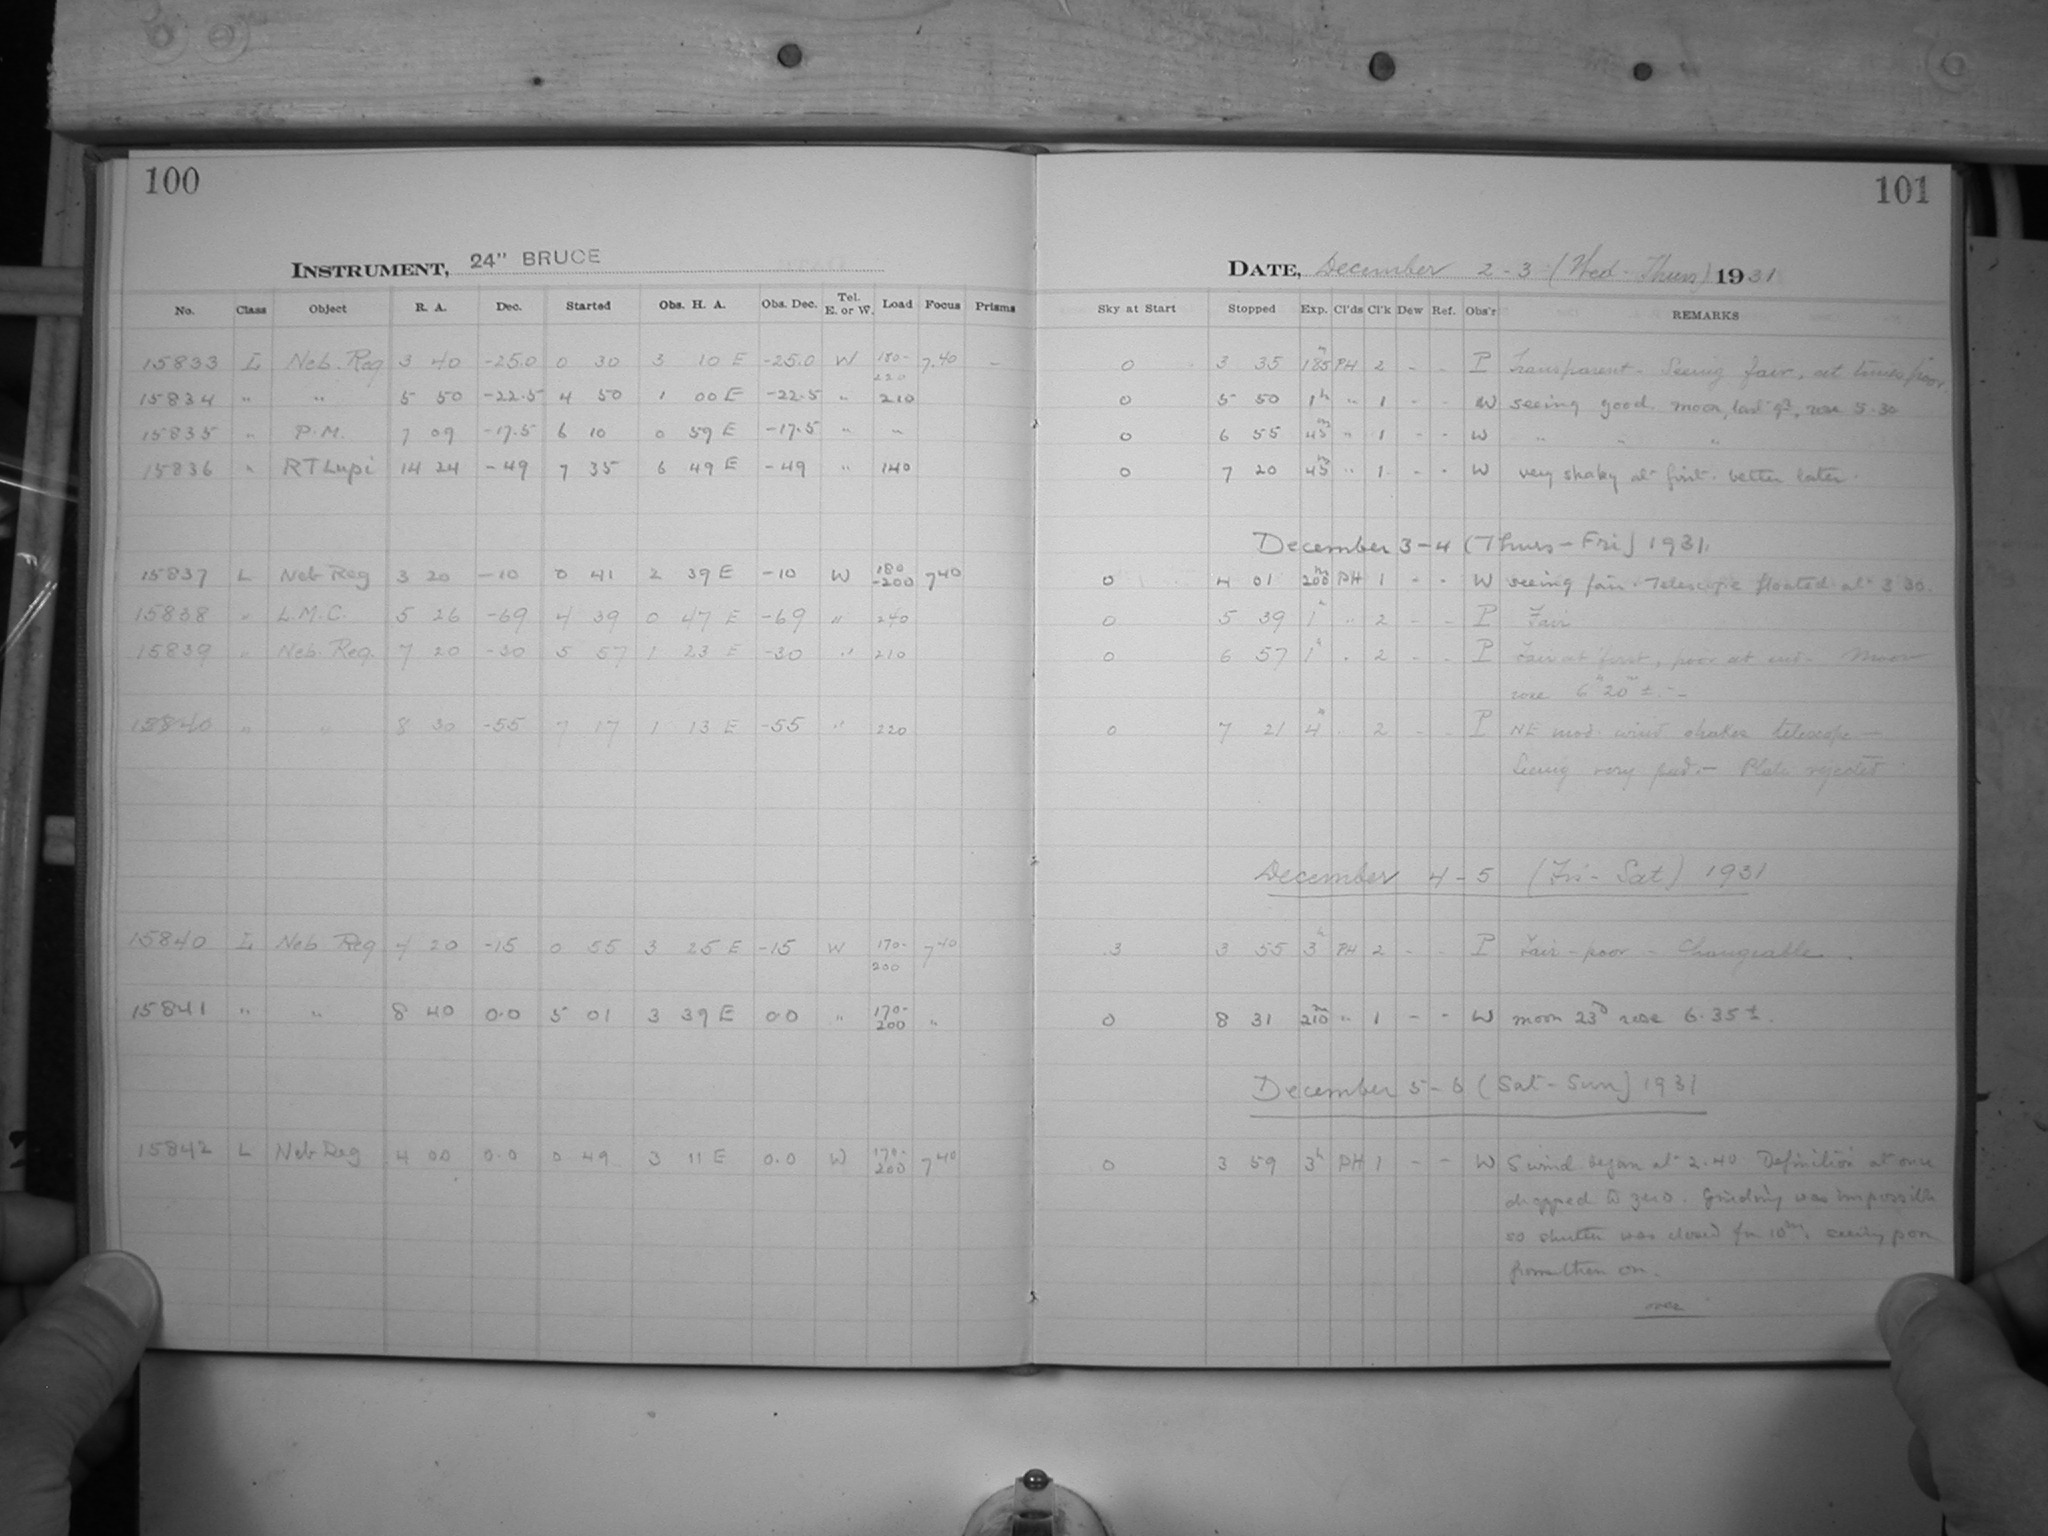 100
INSTRUMENT, 24" BRUCE
No. Class Object R. A. Dec. Started Obs. H. A. Obs. Dec. Tel. E. or W. Load Focus Prisms
15833 L Neb. Reg 3 40 -25.0 0 30 3 10 E -25.0 W 180- 220 7.40 -
15834 " " 5 50 -22.5 4 50 1 00 E -22.5 " 210
15835 " P.M. 7 09 -17.5 6 10 0 59 E -17.5 " "
15836 " RT Lupi 14 24 -49 7 35 6 49 E -49 " 140
15837 L Neb Reg 3 20 -10 0 41 2 39 E -10 W 180 -200 7 40
15838 " L.M.C. 5 26 -69 4 39 0 47 E -69 " 240
15839 " Neb. Reg. 7 20 -30 5 57 1 23 E -30 " 210
15840 " " 8 30 -55 7 17 1 13 E -55 " 220
15840 L Neb Reg 4 20 -15 0 55 3 25 E -15 W 170- 200 7 40
15841 " " 8 40 0.0 5 01 3 39 E 0.0 " 170- 200 "
15842 L Neb Reg 4 00 0.0 0 49 3 11 E 0.0 W 170- 200 7 40
101
DATE, December 2-3 (Wed - Thurs) 1931
Sky at Start Stopped Exp. Cl'ds Cl'k Dew Ref. Obs'r REMARKS
0 3 35 185m PH 2 - - P Transparent - Seeing fair, at times poor
0 5 50 1h " 1 - - W seeing good. moon, last qr, rose 5.30
0 6 55 45m " 1 - - W " " "
0 7 20 45m " 1 - - W very shaky at first. better later.
December 3-4 (Thurs - Fri) 1931.
0 4 01 200m PH 1 - - W seeing fair. Telescope floated at 3 30.
0 5 39 1h " 2 - - P Fair
0 6 57 1h " 2 - - P Fair at first, poor at end. Moon
rose 6h 20m ±. -
0 7 21 4m 2 - - P NE mod. wind shakes telescope -
Seeing very bad. - Plate rejected
December 4-5 (Fri - Sat) 1931
3 3 55 3h PH 2 - - P Fair - poor - Changeable.
0 8 31 210m " 1 - - W moon 23d rose 6.35 ±.
December 5-6 (Sat - Sun) 1931
0 3 59 3h PH 1 - - W S wind began at 2.40 Definition at once
dropped to zero. Guiding was impossible
so shutter was closed for 10m, seeing poor
from then on.
over